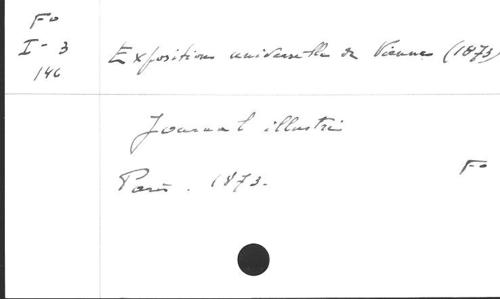 Fo
I-3
146
Exposition universelle de Vienne (1873)
Journal illustré
Paris. 1873.
Fo